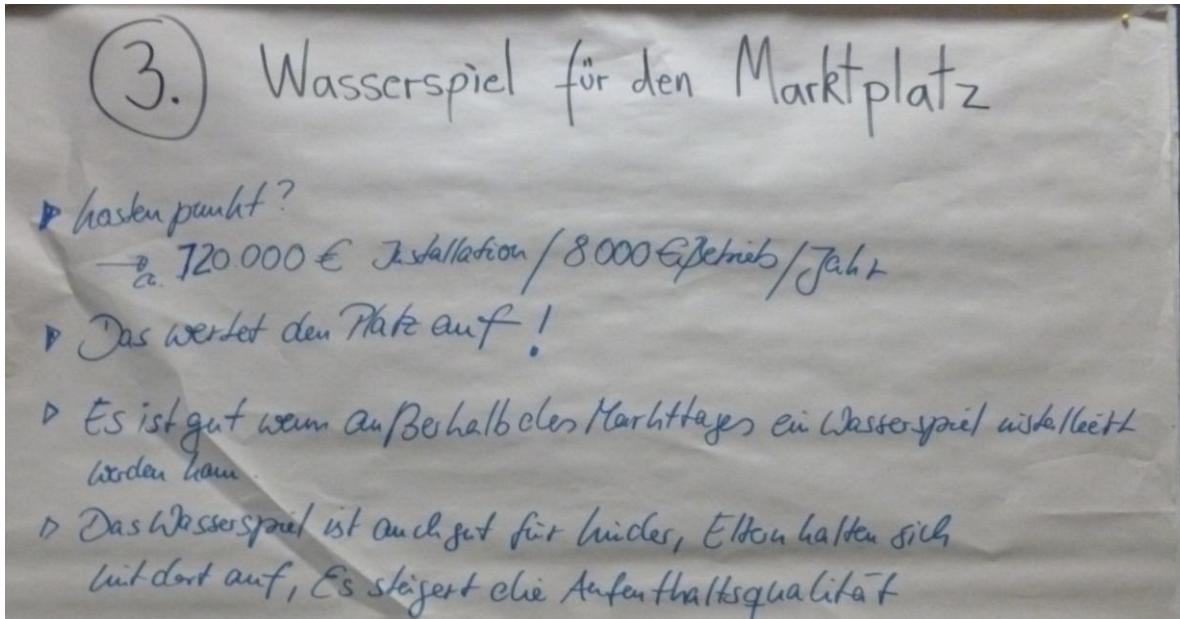 3. Wasserspiel für den Marktplatz
Kostenpunkt?
→ ca. 120.000 € Installation / 8000 € Betrieb / Jahr
Das wertet den Platz auf!
Es ist gut wenn außerhalb des Markttages ein Wasserspiel installiert
werden kann.
Das Wasserspiel ist auch gut für Kinder, Eltern halten sich
mit dort auf, Es steigert die Aufenthaltsqualität